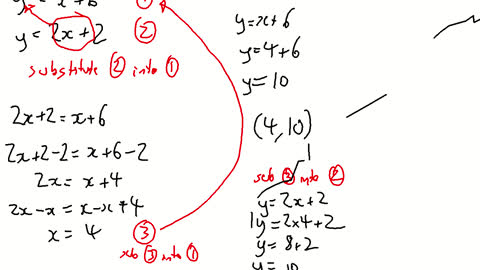 y = x + 6 ①
y = 2x + 2 ②
substitute ② into ①
2x + 2 = x + 6
2x + 2 - 2 = x + 6 - 2
2x = x + 4
2x - x = x - x + 4
x = 4 ③
sub ③ into ①
y = x + 6
y = 4 + 6
y = 10
(4, 10)
sub ③ into ②
y = 2x + 2
y = 2x4 + 2
y = 8 + 2
y = 10